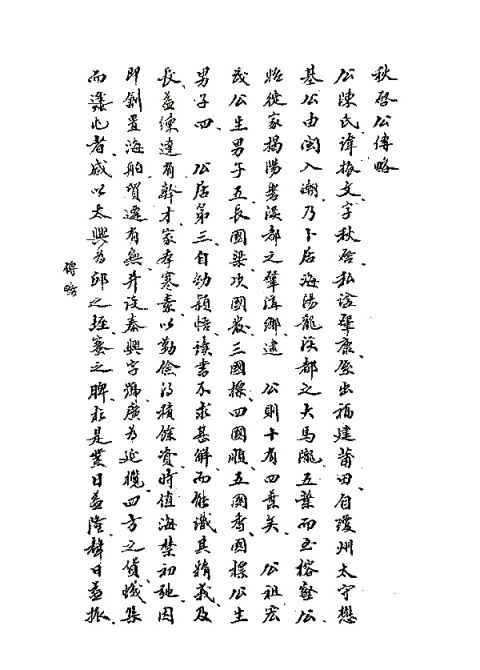 秋啓公傳略
公陳氏諱振文字秋啓私諡肇康原出福建莆田自瓊州太守懋
基公由閩入潮乃卜居海陽龍溪都之大馬隴五葉而玉榕壑公
始徙家揭陽霖溪都之肇溝鄉逮 公則十有四葉矣 公祖宏
茂公生男子五長國梁次國發三國標四國順五國秀國標公生
男子四 公居第三自幼穎悟讀書不求甚解而能識其精義及
長益練達有幹才家存寒素以勤儉得積餘資時值海禁初馳因
即創置海舶貿遷有無并設泰興字號廣為延攬四方之貨蟻集
而蠭屯者咸以太興為邱之垤蜜之脾於是業日益隆聲日益振
傳略